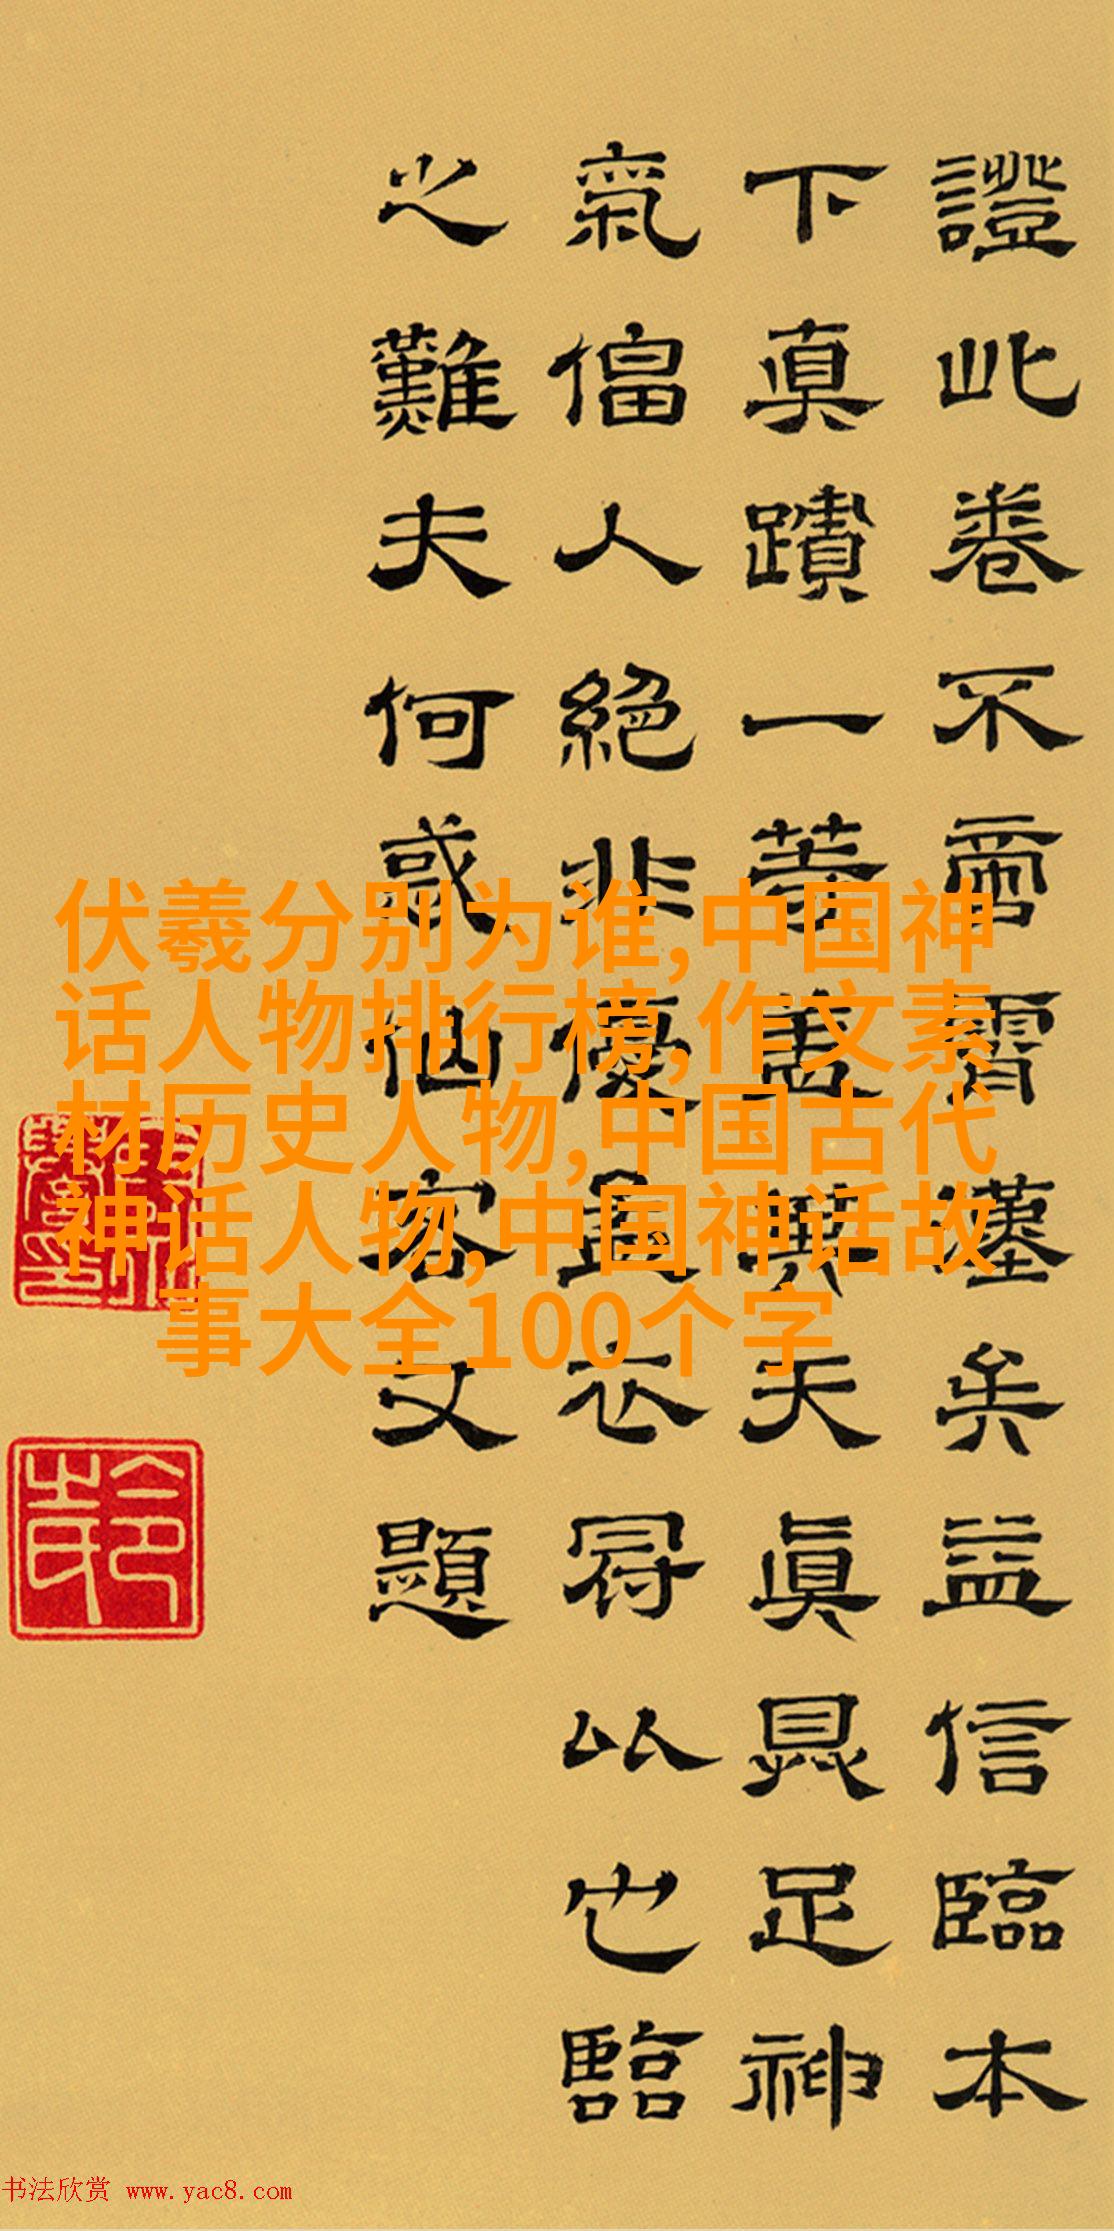 證此卷不啻霄壤矣益信臨本
下真蹟一等蓋異天真具足神
氣偪人絕非優孟衣冠以也臨
之難夫何惑仙客文題
伏羲分别为谁,中国神
话人物排行榜,作文素
材历史人物,中国古代
神话人物,中国神话故
事大全100个字
书法欣赏 www.yac8.com